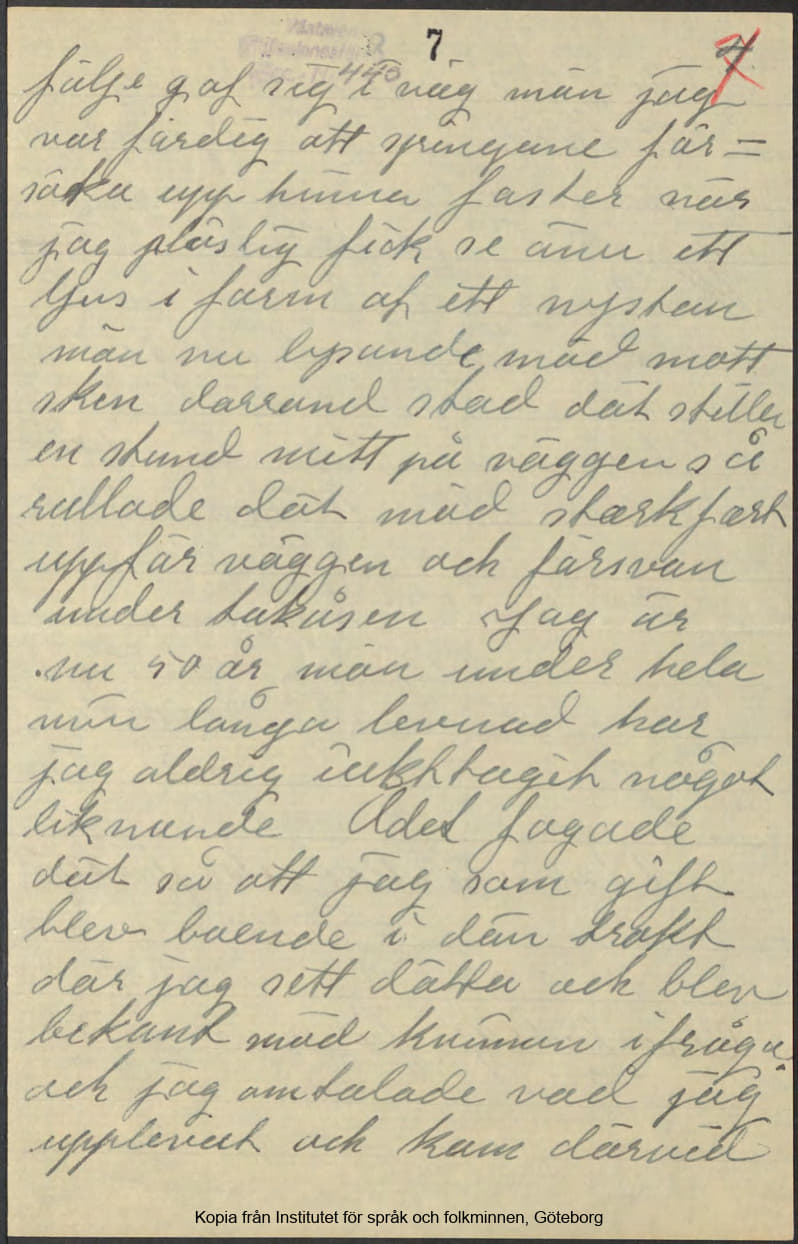 7
440
följe gaf sig i väg män jag
var färdig att springane för=
söka upp hinna faster när
jag plöslig fick se änu ett
ljus i form af ett nystan
män nu lysande mäd matt
sken darrand stod dät stilla
en stund mitt på väggen så
rullade dät mäd starkfart
uppför väggen och försvan
under takåsen Jag är
nu 50 år män under hela
min långa levnad har
jag aldrig iakttagit något
liknande Ödet fogade
dät så att jag som gift
blev boende i dän trakt
där jag sett dätta och blev
bekant mäd kvinnan ifråga.
och jag omtalade vad jag
upplevat och kom därvid
Kopia från Institutet för språk och folkminnen, Göteborg